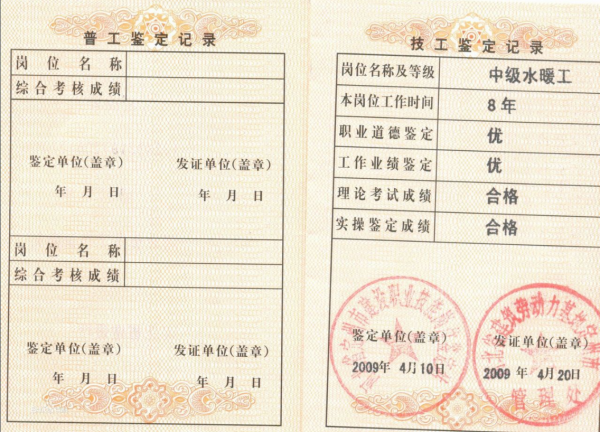 普工鉴定记录
岗位名称
综合考核成绩
鉴定单位(盖章) 发证单位(盖章)
年 月 日 年 月 日
岗位名称
综合考核成绩
鉴定单位(盖章) 发证单位(盖章)
年 月 日 年 月 日
技工鉴定记录
岗位名称及等级 中级水暖工
本岗位工作时间 8年
职业道德鉴定 优
工作业绩鉴定 优
理论考试成绩 合格
实操鉴定成绩 合格
鉴定单位(盖章) 发证单位(盖章)
2009年 4月10日 2009年 4月20日
管理处